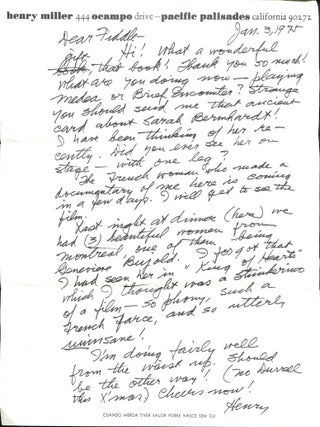 henry miller 444 ocampo drive – pacific palisades california 90272
Jan. 3, 1975
Dear Fiddler
Hi! What a wonderful
gift, that book! Thank you so much!
What are you doing now – playing
Medea or Brief Encounter? Strange
you should send me that ancient
card about Sarah Bernhardt!
I have been thinking of her re-
cently. Did you ever see her on
stage – with one leg?
The French woman who made a
documentary of me here is coming
in a few days. I will get to see the
film.
Last night at dinner (here) we
had (3) beautiful women from
Montreal, one of them being
Genevieve Bujold. I forgot that
I had seen her in "King of Hearts"
which I thought was a
of a film – so phony, such a
French farce, and so utterly
I'm doing fairly well
from the waist up. Should
be the other way! (No Durrell
this X'mas) Cheers now!
Henry
CUANDO MERDA TIVER VALOR POBRE NASCE SEM CU